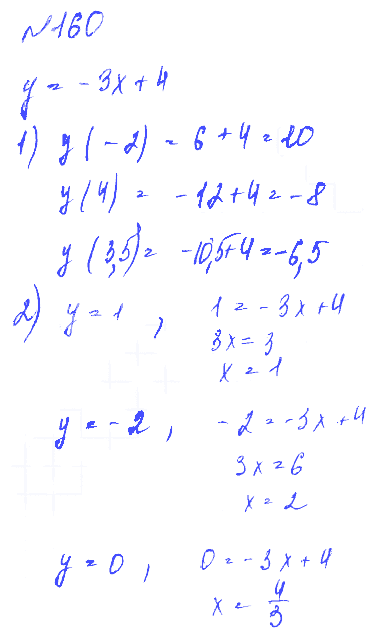 №160
y = -3x + 4
1) y(-2) = 6 + 4 = 10
y(4) = -12 + 4 = -8
y(3,5) = -10,5 + 4 = -6,5
2) y = 1, 1 = -3x + 4
3x = 3
x = 1
y = -2, -2 = -3x + 4
3x = 6
x = 2
y = 0, 0 = -3x + 4
x = 4/3